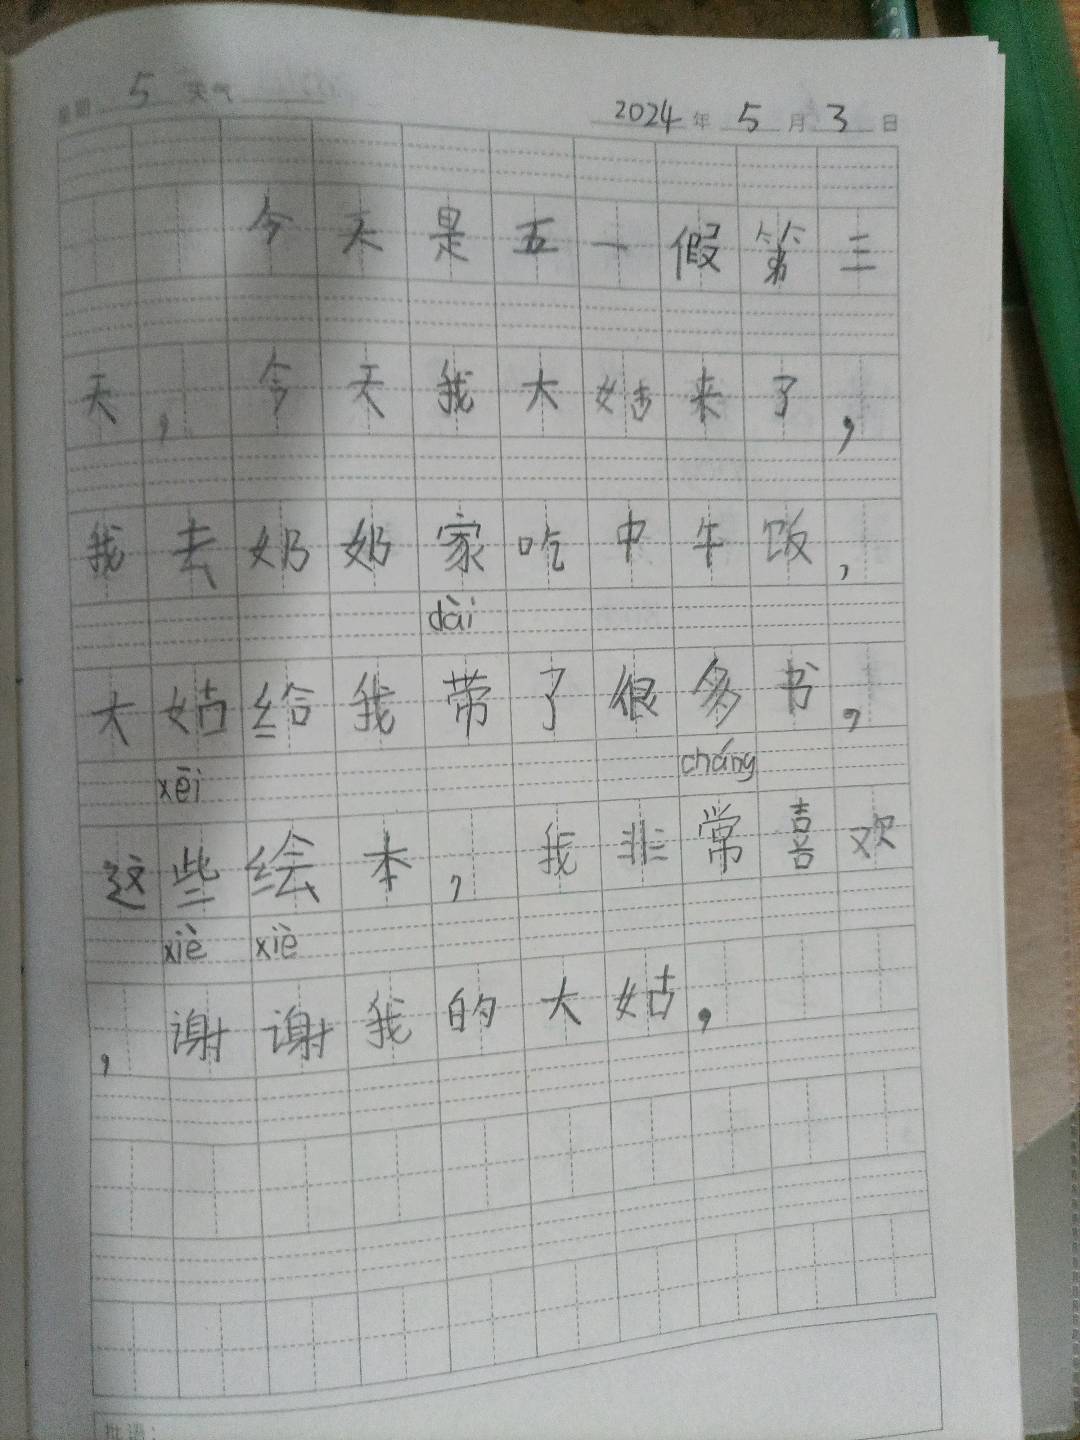 星期 5 天气
2024 年 5 月 3 日
今天是五一假第三
天，今天我大姑来了，
我去奶奶家吃中午饭，
dài
大姑给我带了很多书，
xēi cháng
这些绘本，我非常喜欢
xiè xiè
，谢谢我的大姑，
批语：